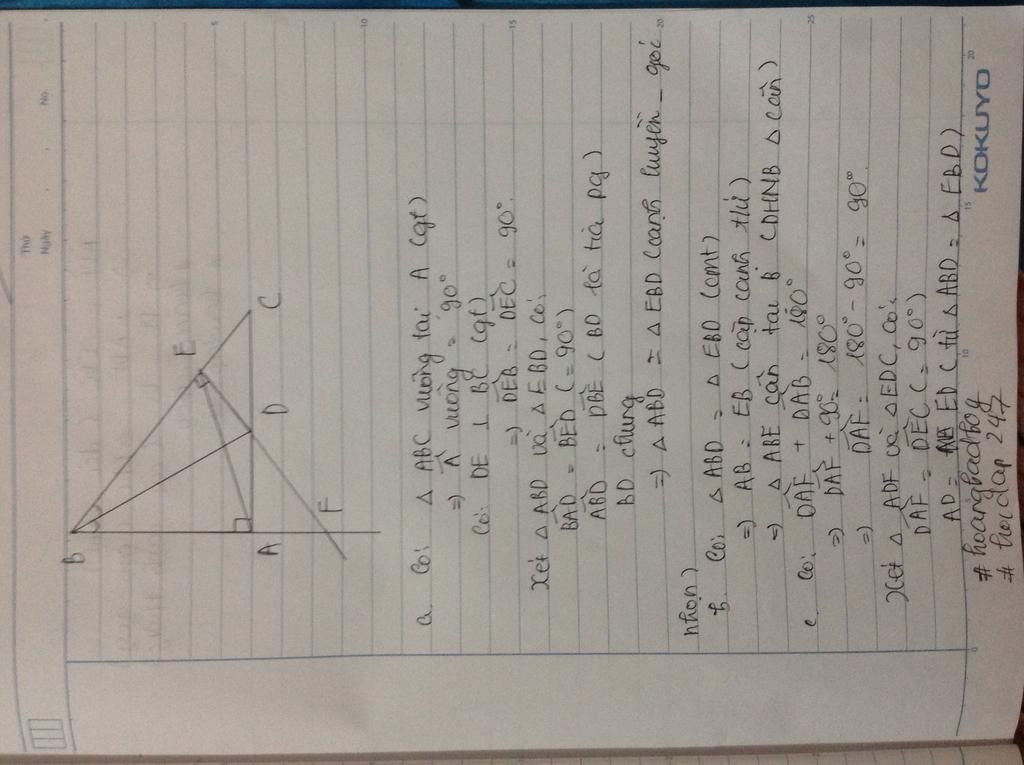 Thứ
Ngày
No.
B
E
A
D
C
F
a. Có: △ ABC vuông tại A (gt)
=) Â vuông = 90°
Có: DE ⊥ BC (gt)
=) DÊB = DÊC = 90°
Xét △ ABD và △ EBD, có:
BÂD = BÊD (= 90°)
AB̂D = DB̂E (BD là tia pg)
BD chung
=) △ ABD = △ EBD (cạnh huyền _ góc
nhọn)
b. Có: △ ABD = △ EBD (cmt)
=) AB = EB (cặp cạnh t/ứ)
=) △ ABE cân tại B (DHNB △ cân)
c. Có: DÂF + DÂB = 180°
=) DÂF + 90° = 180°
=) DÂF = 180° - 90° = 90°
Xét △ ADF và △ EDC, có:
DÂF = DÊC (= 90°)
AD = ED (từ △ ABD = △ EBD)
# hoangbachof
# hoidap247
KOKUYO
5
10
15
20
25
0
10
15
20